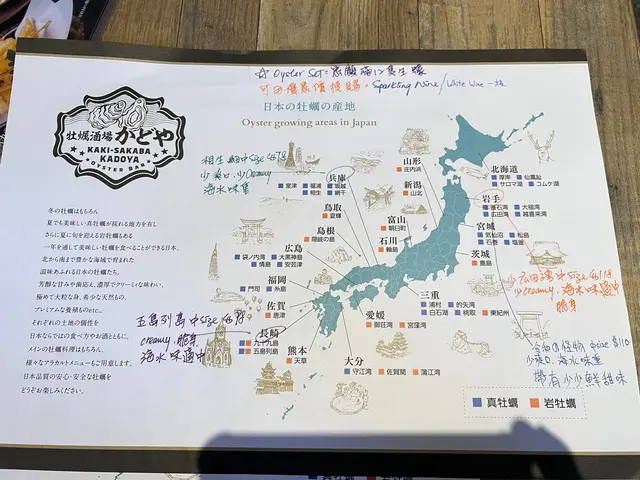 ☆ Oyster Set: 惠顧滿12隻生蠔
可用優惠價換購。Sparkling Wine / White Wine 一枝
日本の牡蠣の産地
Oyster growing areas in Japan
牡蠣酒場 かどや
KAKI-SAKABA
KADOYA
OYSTER BAR
相生 細中size 4678
少爽口.少creamy
海水味隻
冬の牡蠣はもちろん
夏でも美味しい真牡蠣が採れる地方を有し
さらに夏に旬を迎える岩牡蠣もある
一年を通して美味しい牡蠣を食べることができる日本。
北から南まで豊かな海域で育まれた
滋味あふれる日本の牡蠣たち。
芳醇な甘みや歯応え、濃厚でクリーミな味わい、
極めて大粒な身、希少な天然もの、
プレミアムな養殖ものetc...
それぞれの土地の個性を
日本ならではの食べ方やお酒とともに。
メインの牡蠣料理はもちろん、
様々なアラカルトメニューもご用意します。
日本品質の安心・安全な牡蠣を
どうぞお楽しみください。
五島列島 中size
creamy.脆身
海水味適中
北海道
厚岸 仙鳳趾
サロマ湖 コムケ湖
岩手
釜石湾 大槌湾
広田湾 越喜来湾
宮城
気仙沼 松島
石巻 塩釜
茨城
鹿島
山形
庄内浜
新潟
山北
富山
朝日町
石川
輪島
兵庫
室津 福浦 坂越
相生 網干
鳥取
夏輝
島根
隠岐の島
広島
袋ノ内湾 大黒神島
情島 安芸津
福岡
門司 糸島
佐賀
唐津
長崎
九十九島
五島列島
熊本
天草
大分
守江湾 佐賀関 蒲江湾
愛媛
御荘湾 宮窪湾
三重
浦村 的矢湾
白石湖 桃取 東紀州
広田湾 中size
少creamy.海水味適中
脆身
size $110
少爽口.海水味重
帶有少少鮮甜味
真牡蠣 岩牡蠣